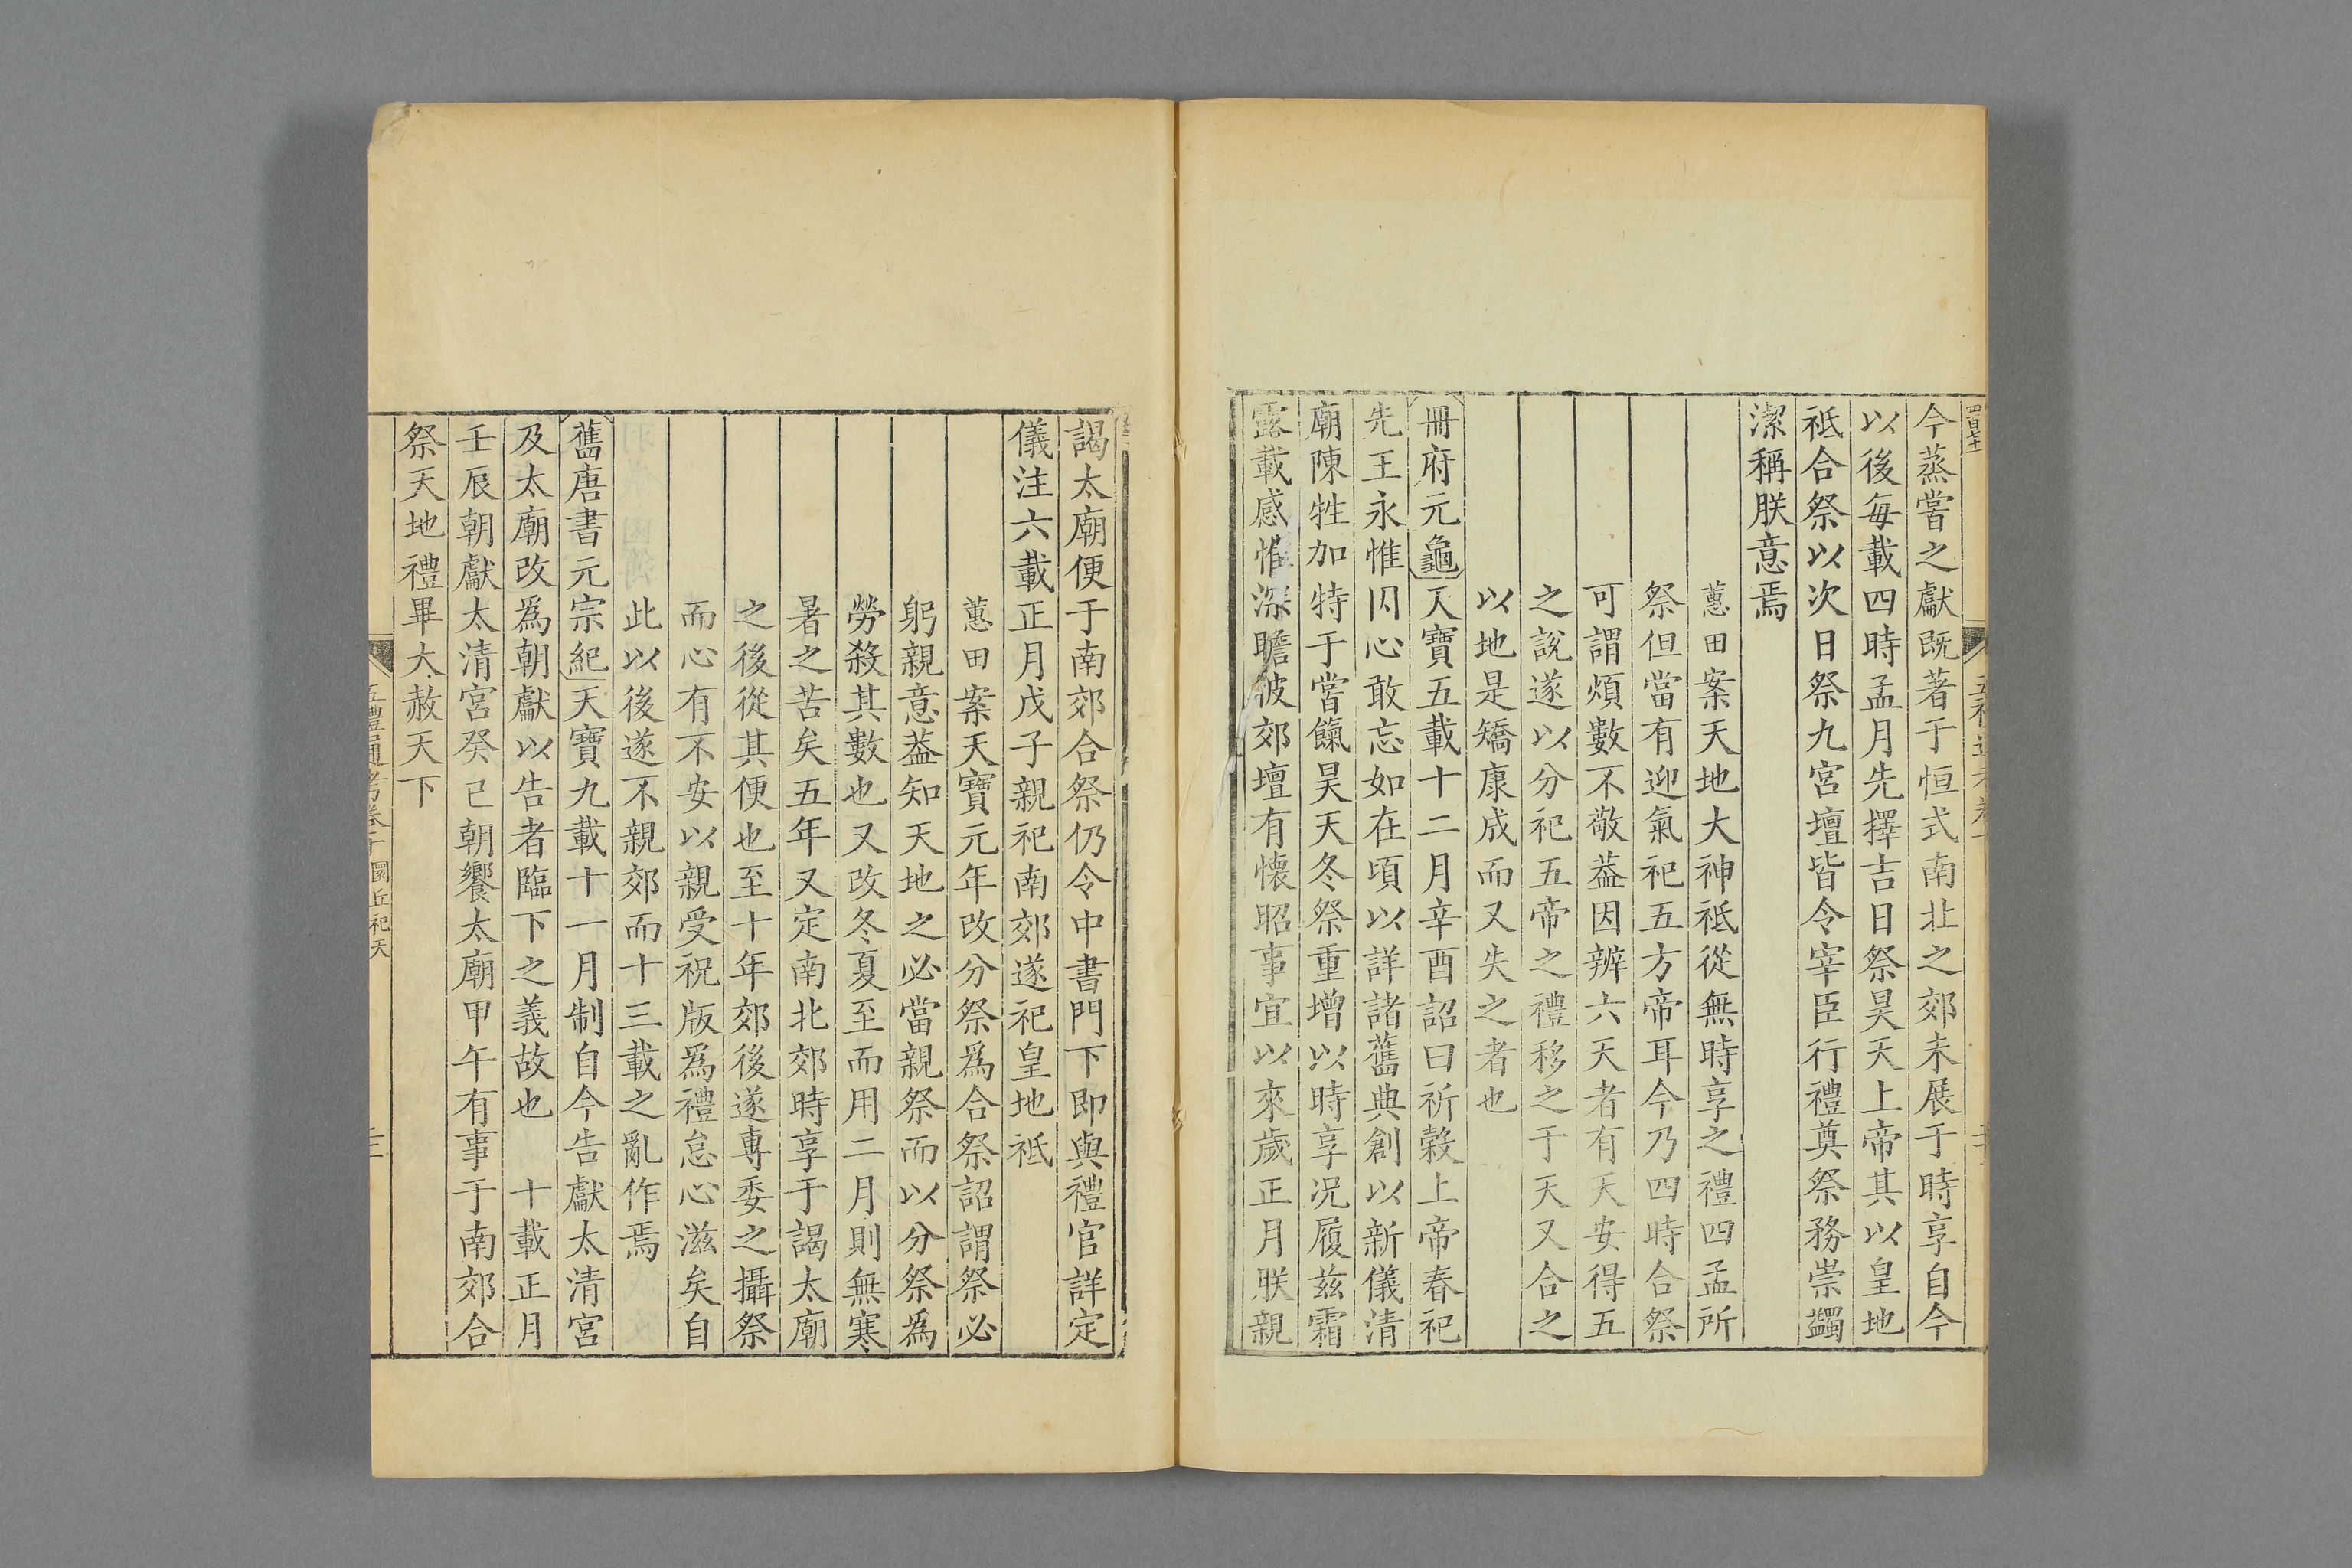 今蒸嘗之獻既著于恒式南北之郊未展于時享自今
以後每載四時孟月先擇吉日祭昊天上帝其以皇地
祇合祭以次日祭九宮壇皆令宰臣行禮奠祭務崇蠲
潔稱朕意焉
蕙田案天地大神祇從無時享之禮四孟所
祭但當有迎氣祀五方帝耳今乃四時合祭
可謂煩數不敬葢因辨六天者有天安得五
之說遂以分祀五帝之禮移之于天又合之
以地是矯康成而又失之者也
冊府元龜天寶五載十二月辛酉詔曰祈穀上帝春祀
先王永惟因心敢忘如在頃以詳諸舊典創以新儀清
廟陳牲加特于嘗餼昊天冬祭重增以時享况履兹霜
露載感惟深瞻彼郊壇有懷昭事宜以來歲正月朕親
謁太廟便于南郊合祭仍令中書門下即與禮官詳定
儀注六載正月戊子親祀南郊遂祀皇地祇
蕙田案天寶元年改分祭爲合祭詔謂祭必
躬親意葢知天地之必當親祭而以分祭爲
勞殺其數也又改冬夏至而用二月則無寒
暑之苦矣五年又定南北郊時享于謁太廟
之後從其便也至十年郊後遂專委之攝祭
而心有不安以親受祝版爲禮怠心滋矣自
此以後遂不親郊而十三載之亂作焉
舊唐書元宗紀天寶九載十一月制自今告獻太清宮
及太廟改爲朝獻以告者臨下之義故也　十載正月
壬辰朝獻太清宮癸已朝饗太廟甲午有事于南郊合
祭天地禮畢大赦天下
五禮通考卷十 圜丘祀天